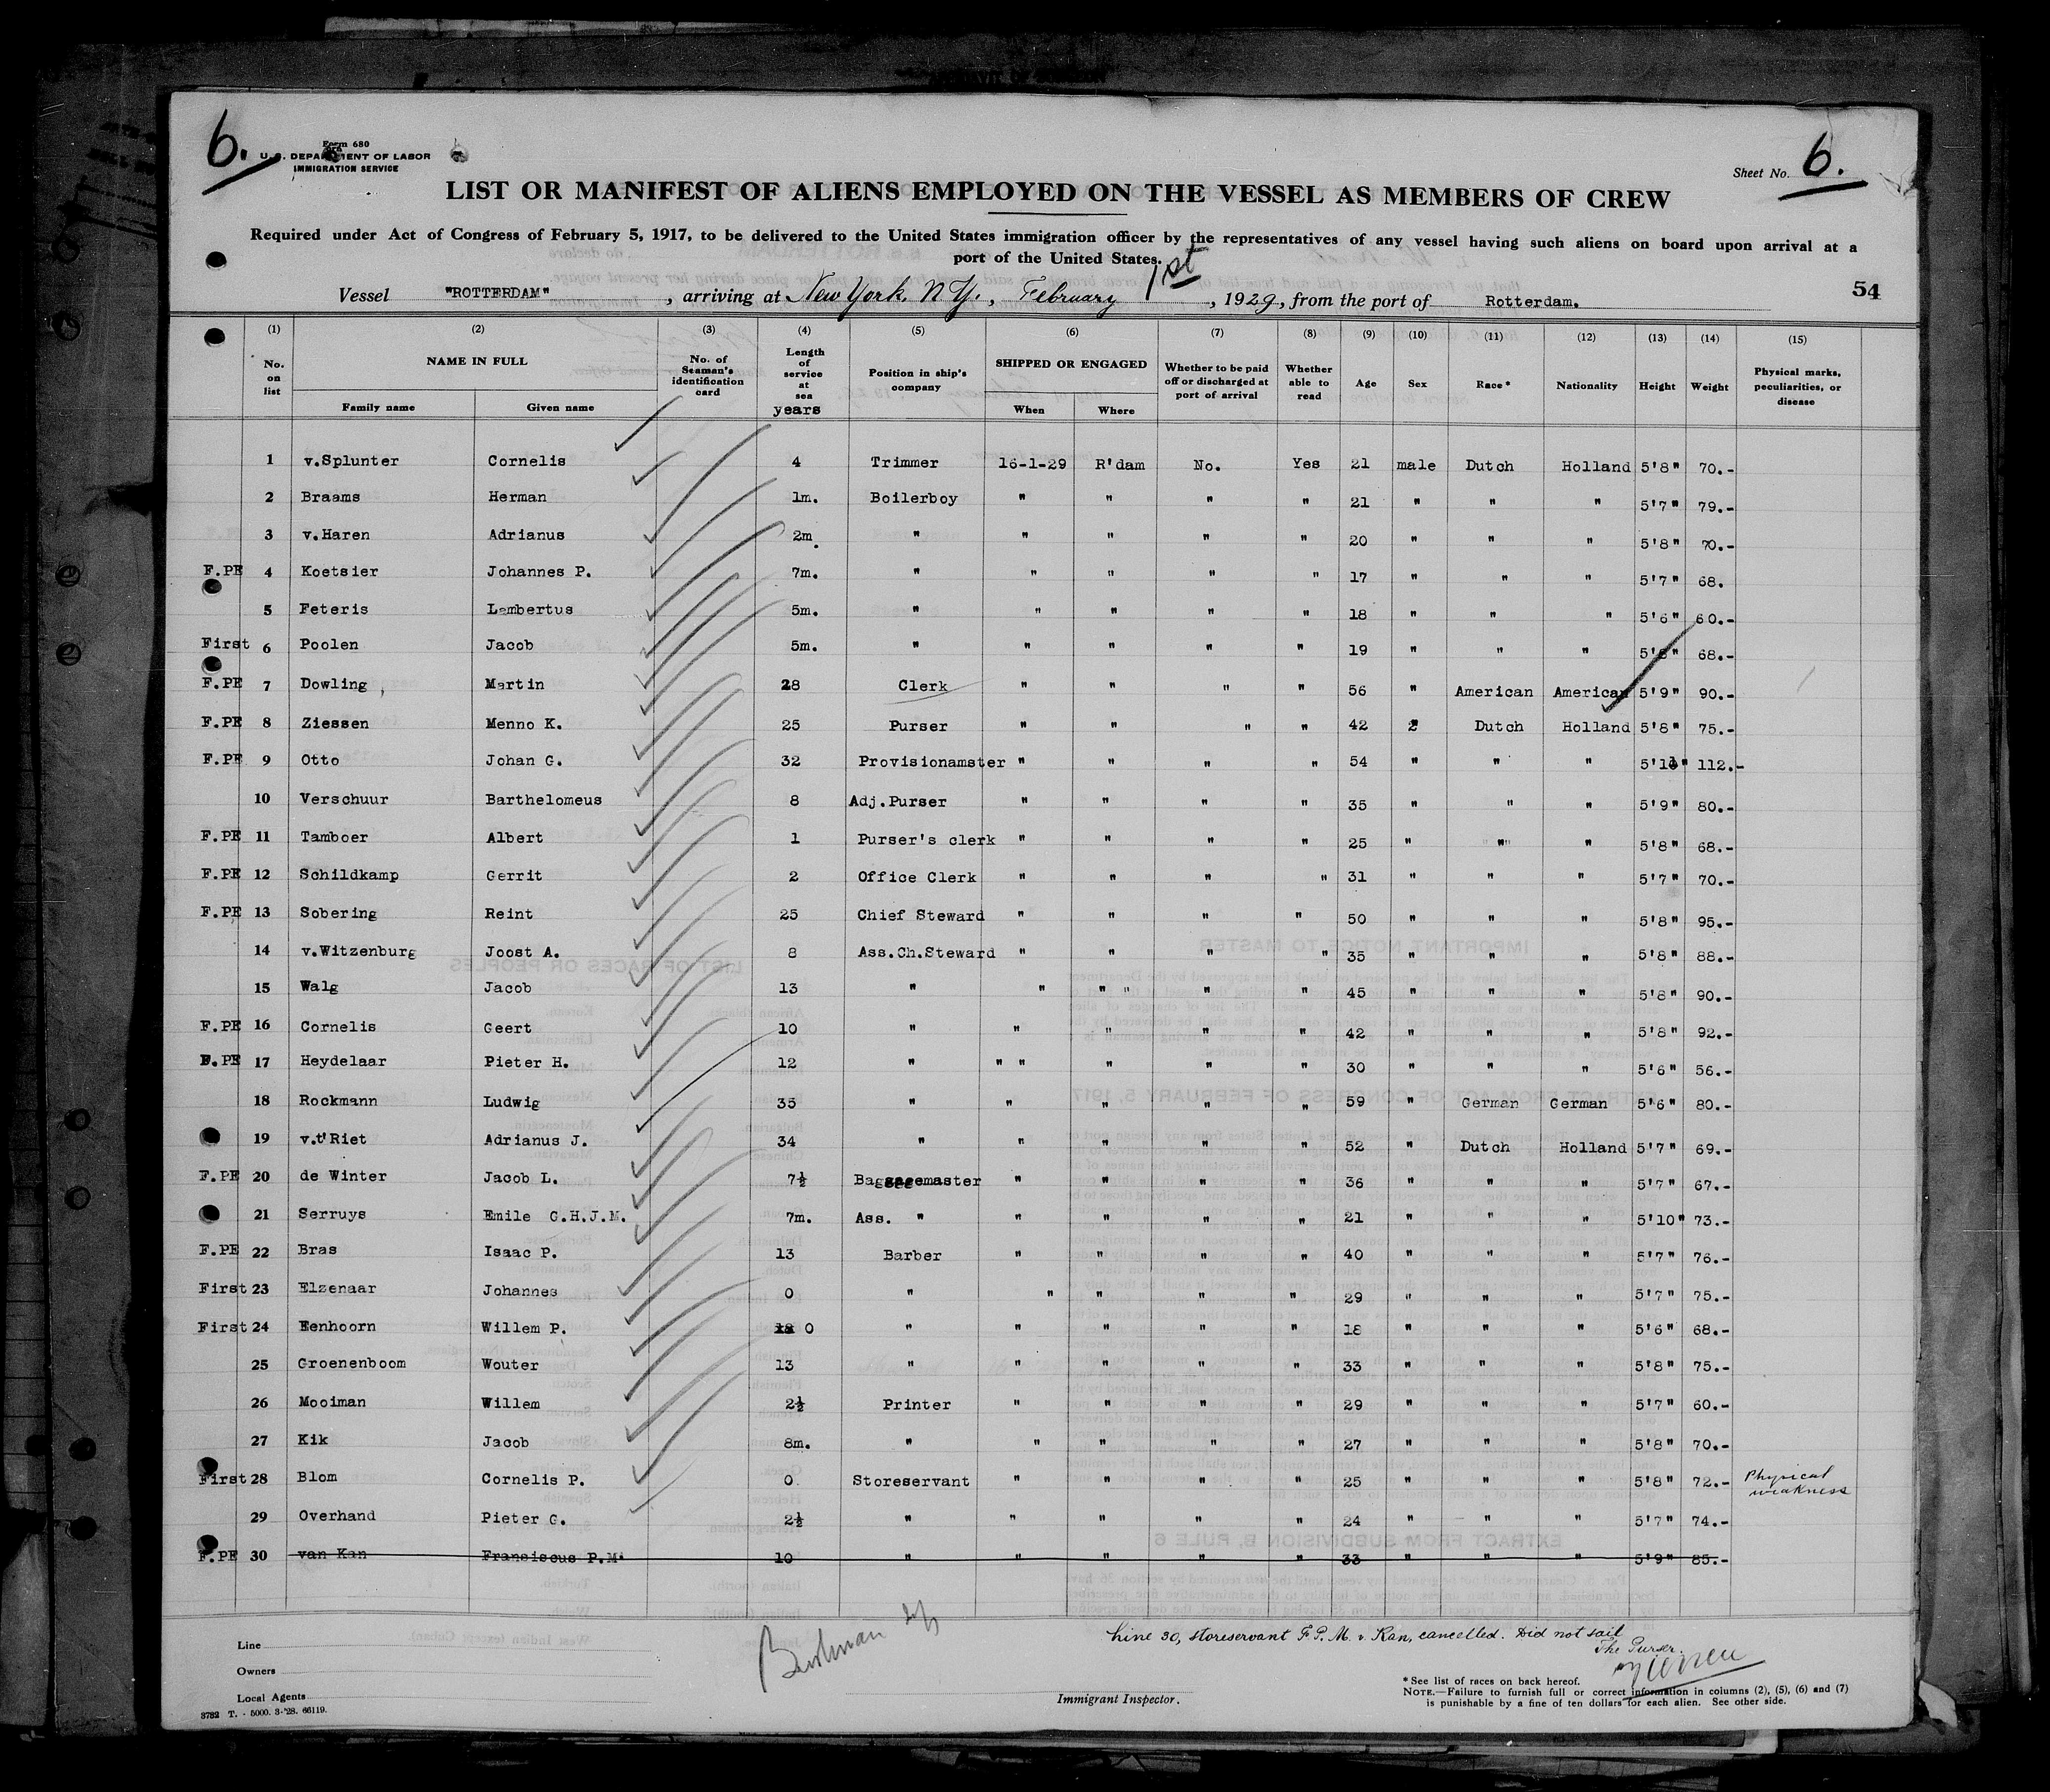 6.
Form 680
U.S. DEPARTMENT OF LABOR
IMMIGRATION SERVICE
Sheet No. 6.
LIST OR MANIFEST OF ALIENS EMPLOYED ON THE VESSEL AS MEMBERS OF CREW
Required under Act of Congress of February 5, 1917, to be delivered to the United States immigration officer by the representatives of any vessel having such aliens on board upon arrival at a
port of the United States.
Vessel "ROTTERDAM", arriving at New York, N.Y., February 1st, 1929, from the port of Rotterdam.
54
(1) (2) (3) (4) (5) (6) (7) (8) (9) (10) (11) (12) (13) (14) (15)
No. on list NAME IN FULL Family name Given name No. of Seaman's identification card Length of service at sea years Position in ship's company SHIPPED OR ENGAGED When Where Whether to be paid off or discharged at port of arrival Whether able to read Age Sex Race* Nationality Height Weight Physical marks, peculiarities, or disease
1 v.Splunter Cornelis 4 Trimmer 16-1-29 R'dam No. Yes 21 male Dutch Holland 5'8" 70.-
2 Braams Herman 1m. Boilerboy " " " " 21 " " " 5'7" 79.-
3 v.Haren Adrianus 2m. " " " " " 20 " " " 5'8" 70.-
F.PE 4 Koetsier Johannes P. 7m. " " " " " 17 " " " 5'7" 68.
5 Feteris Lambertus 5m. " " " " " 18 " " " 5'6" 60.-
First 6 Poolen Jacob 5m. " " " " " 19 " " " 5'8" 68.-
F.PE 7 Dowling, Martin 28 Clerk " " " " 56 " American American 5'9" 90.-
F.PE 8 Ziessen Menno K. 25 Purser " " " " 42 " Dutch Holland 5'8" 75.-
F.PE 9 Otto Johan G. 32 Provisionamster " " " " 54 " " " 5'10" 112.-
10 Verschuur Barthelomeus 8 Adj.Purser " " " " 35 " " " 5'9" 80.-
F.PE 11 Tamboer Albert 1 Purser's clerk " " " " 25 " " " 5'8" 68.-
F.PE 12 Schildkamp Gerrit 2 Office Clerk " " " " 31 " " " 5'7" 70.-
F.PE 13 Sobering Reint 25 Chief Steward " " " " 50 " " " 5'8" 95.-
14 v.Witzenburg Joost A. 8 Ass.Ch.Steward " " " " 35 " " " 5'8" 88.-
15 Walg Jacob 13 " " " " " " 45 " " " 5'8" 90.-
F.PE 16 Cornelis Geert 10 " " " " " 42 " " " 5'8" 92.-
F.PE 17 Heydelaar Pieter H. 12 " " " " " " 30 " " " 5'6" 56.-
18 Rockmann Ludwig 35 " " " " " 59 " German German 5'6" 80.-
19 v.t'Riet Adrianus J. 34 " " " " " 52 " Dutch Holland 5'7" 69.-
F.PE 20 de Winter Jacob L. 7½ Baggagemaster " " " " 36 " " " 5'7" 67.-
21 Serruys Emile C.H.J.M. 7m. Ass. " " " " " 21 " " " 5'10" 73.-
F.PE 22 Bras Isaac P. 13 Barber " " " " 40 " " " 5'7" 76.-
First 23 Elzenaar Johannes 0 " " " " " 29 " " " 5'7" 75.-
First 24 Eenhoorn Willem P. 0 " " " " " 18 " " " 5'6" 68.-
25 Groenenboom Wouter 13 " " " " " 33 " " " 5'8" 75.-
26 Mooiman Willem 2½ Printer " " " " 29 " " " 5'7" 60.-
27 Kik Jacob 8m. " " " " " 27 " " " 5'8" 70.-
First 28 Blom Cornelis P. 0 Storeservant " " " " 25 " " " 5'8" 72.- Physical weakness
29 Overhand Pieter G. 2½ " " " " " 24 " " " 5'7" 74.-
F.PE 30 van Kan Fransiscus P.M. 10 " " " " " 33 " " " 5'9" 85.-
Line 30, storeservant F.P.M. v. Kan, cancelled. Did not sail
The Purser.
Line
Owners
Local Agents
Immigrant Inspector.
* See list of races on back hereof.
NOTE.—Failure to furnish full or correct information in columns (2), (5), (6) and (7)
is punishable by a fine of ten dollars for each alien. See other side.
3782 T. - 5000. 3-'28. 66119.